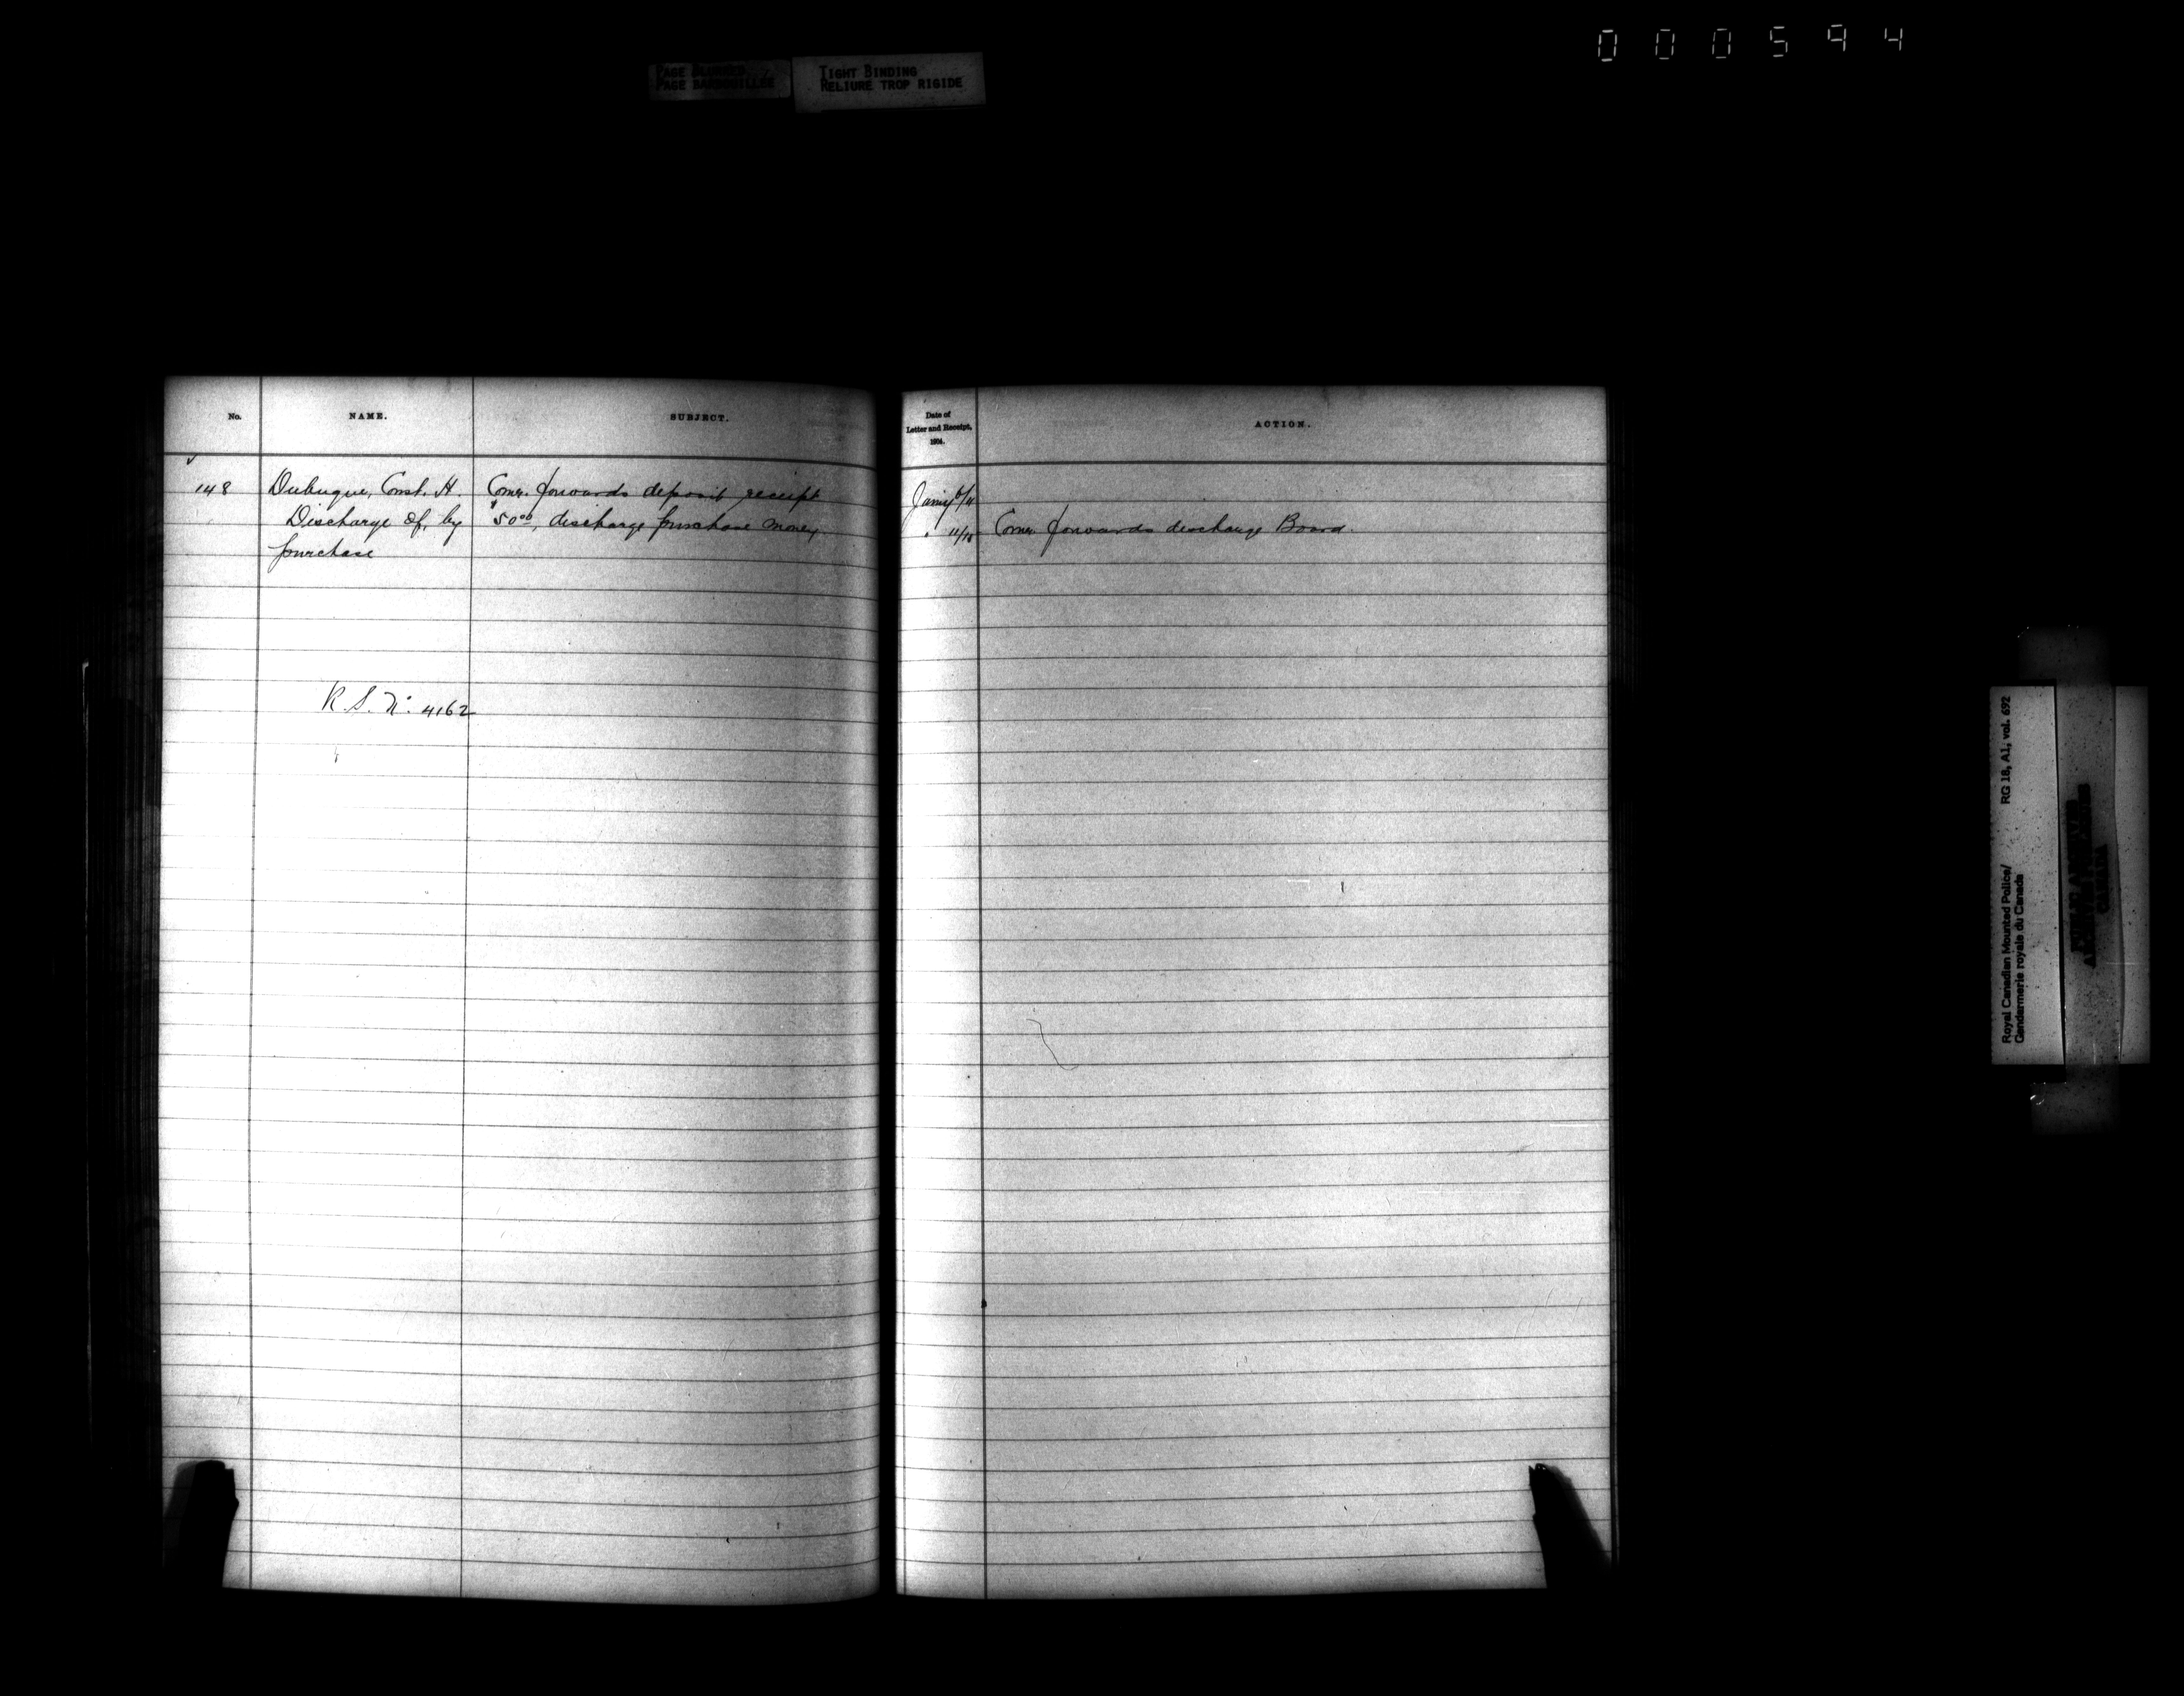 000594
TIGHT BINDING
RELIURE TROP RIGIDE
No.
NAME.
SUBJECT.
148
Dubuque, Const. H.
Discharge of, by
purchase
Comr. forwards deposit receipt
$50.00, discharge purchase money.
R.S. No. 4162
Date of
Letter and Receipt,
1904.
ACTION.
Jany 6/11
" 11/15 Comr. forwards discharge Board.
Royal Canadian Mounted Police/ RG 18, A1, vol. 692
Gendarmerie royale du Canada